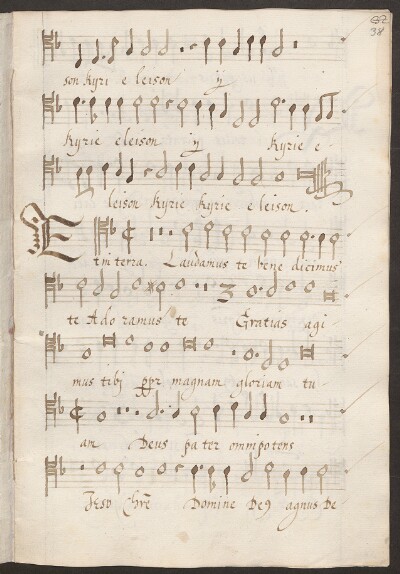 38
son Kyri e leison y
Kyrie eleison y Kyrie e
leison Kyrie Kyrie e leison.
Et in terra. Laudamus te bene dicimus
te Ado ramus te Gratias agi
mus tibj ppr magnam gloriam tu
am Deus pa ter omnipotens
Jesv Chre Domine De9 agnus De